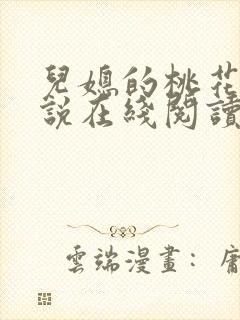 兒媳的桃花
說在綫閱讀
雲端漫畫：